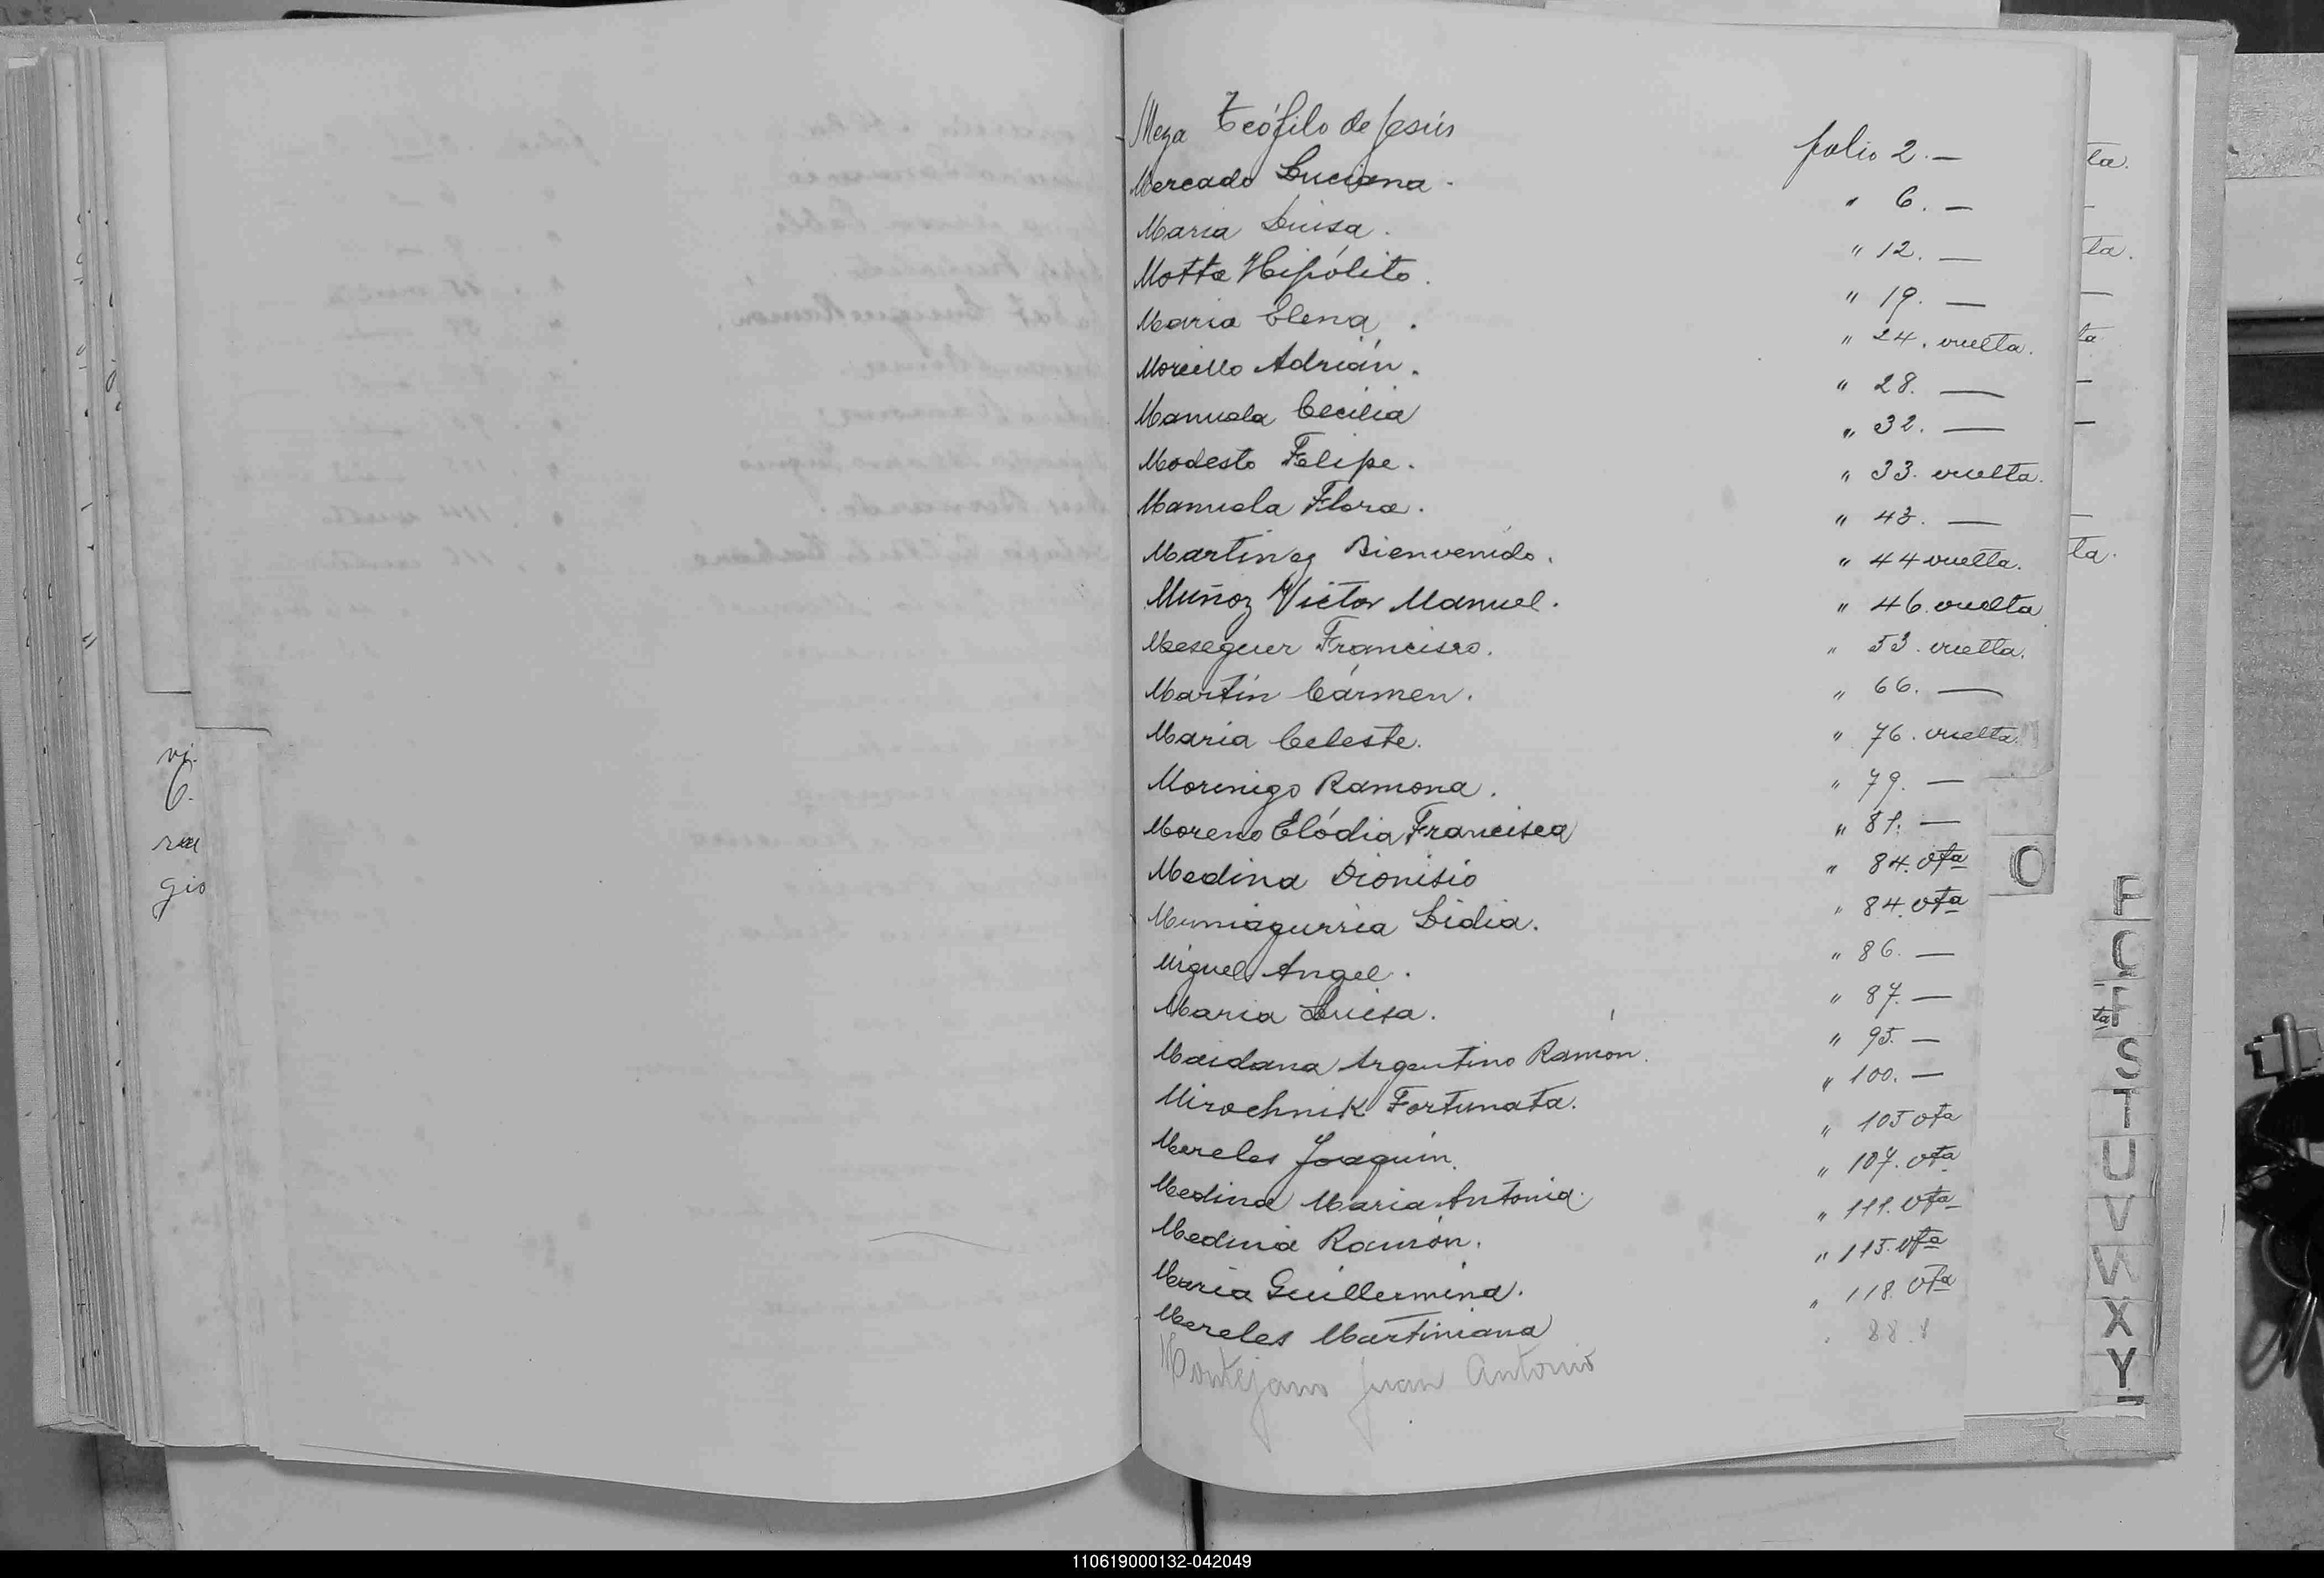 Meza Teófilo de Jesús folio 2. —
Mercado Luciana. " 6. —
Maria Luisa. " 12. —
Motta Hipólito. " 19. —
Maria Elena. " 24. vuelta.
Morello Adrián. " 28. —
Manuela Cecilia " 32. —
Modesto Felipe. " 33. vuelta.
Manuela Flora. " 43. —
Martinez Bienvenido. " 44 vuelta.
Muñoz Victor Manuel. " 46. vuelta
Meseguer Francisco. " 53. vuelta.
Martín Cármen. " 66. —
Maria Celeste. " 76. vuelta.
Morinigo Ramona. " 79. —
Moreno Elódia Francisca " 81. —
Medina Dionisio " 84. vta
Muniagurria Lidia. " 84. vta
Miguel Angel. " 86. —
Maria Luisa. " 87. —
Maidana Argentino Ramón. " 95. —
Mirochnik Fortunata. " 100. —
Mereles Joaquin. " 105 vta
Medina Maria Antonia. " 107. vta
Medina Ramón. " 111. vta
Maria Guillermina. " 115. vta
Mereles Martiniana " 118. vta
Montejano Juan Antonio 88.
vi.
6.
gio
ta.
ta.
ta
ta.
O
P
Q
S
T
U
V
W
X
Y
110619000132-042049